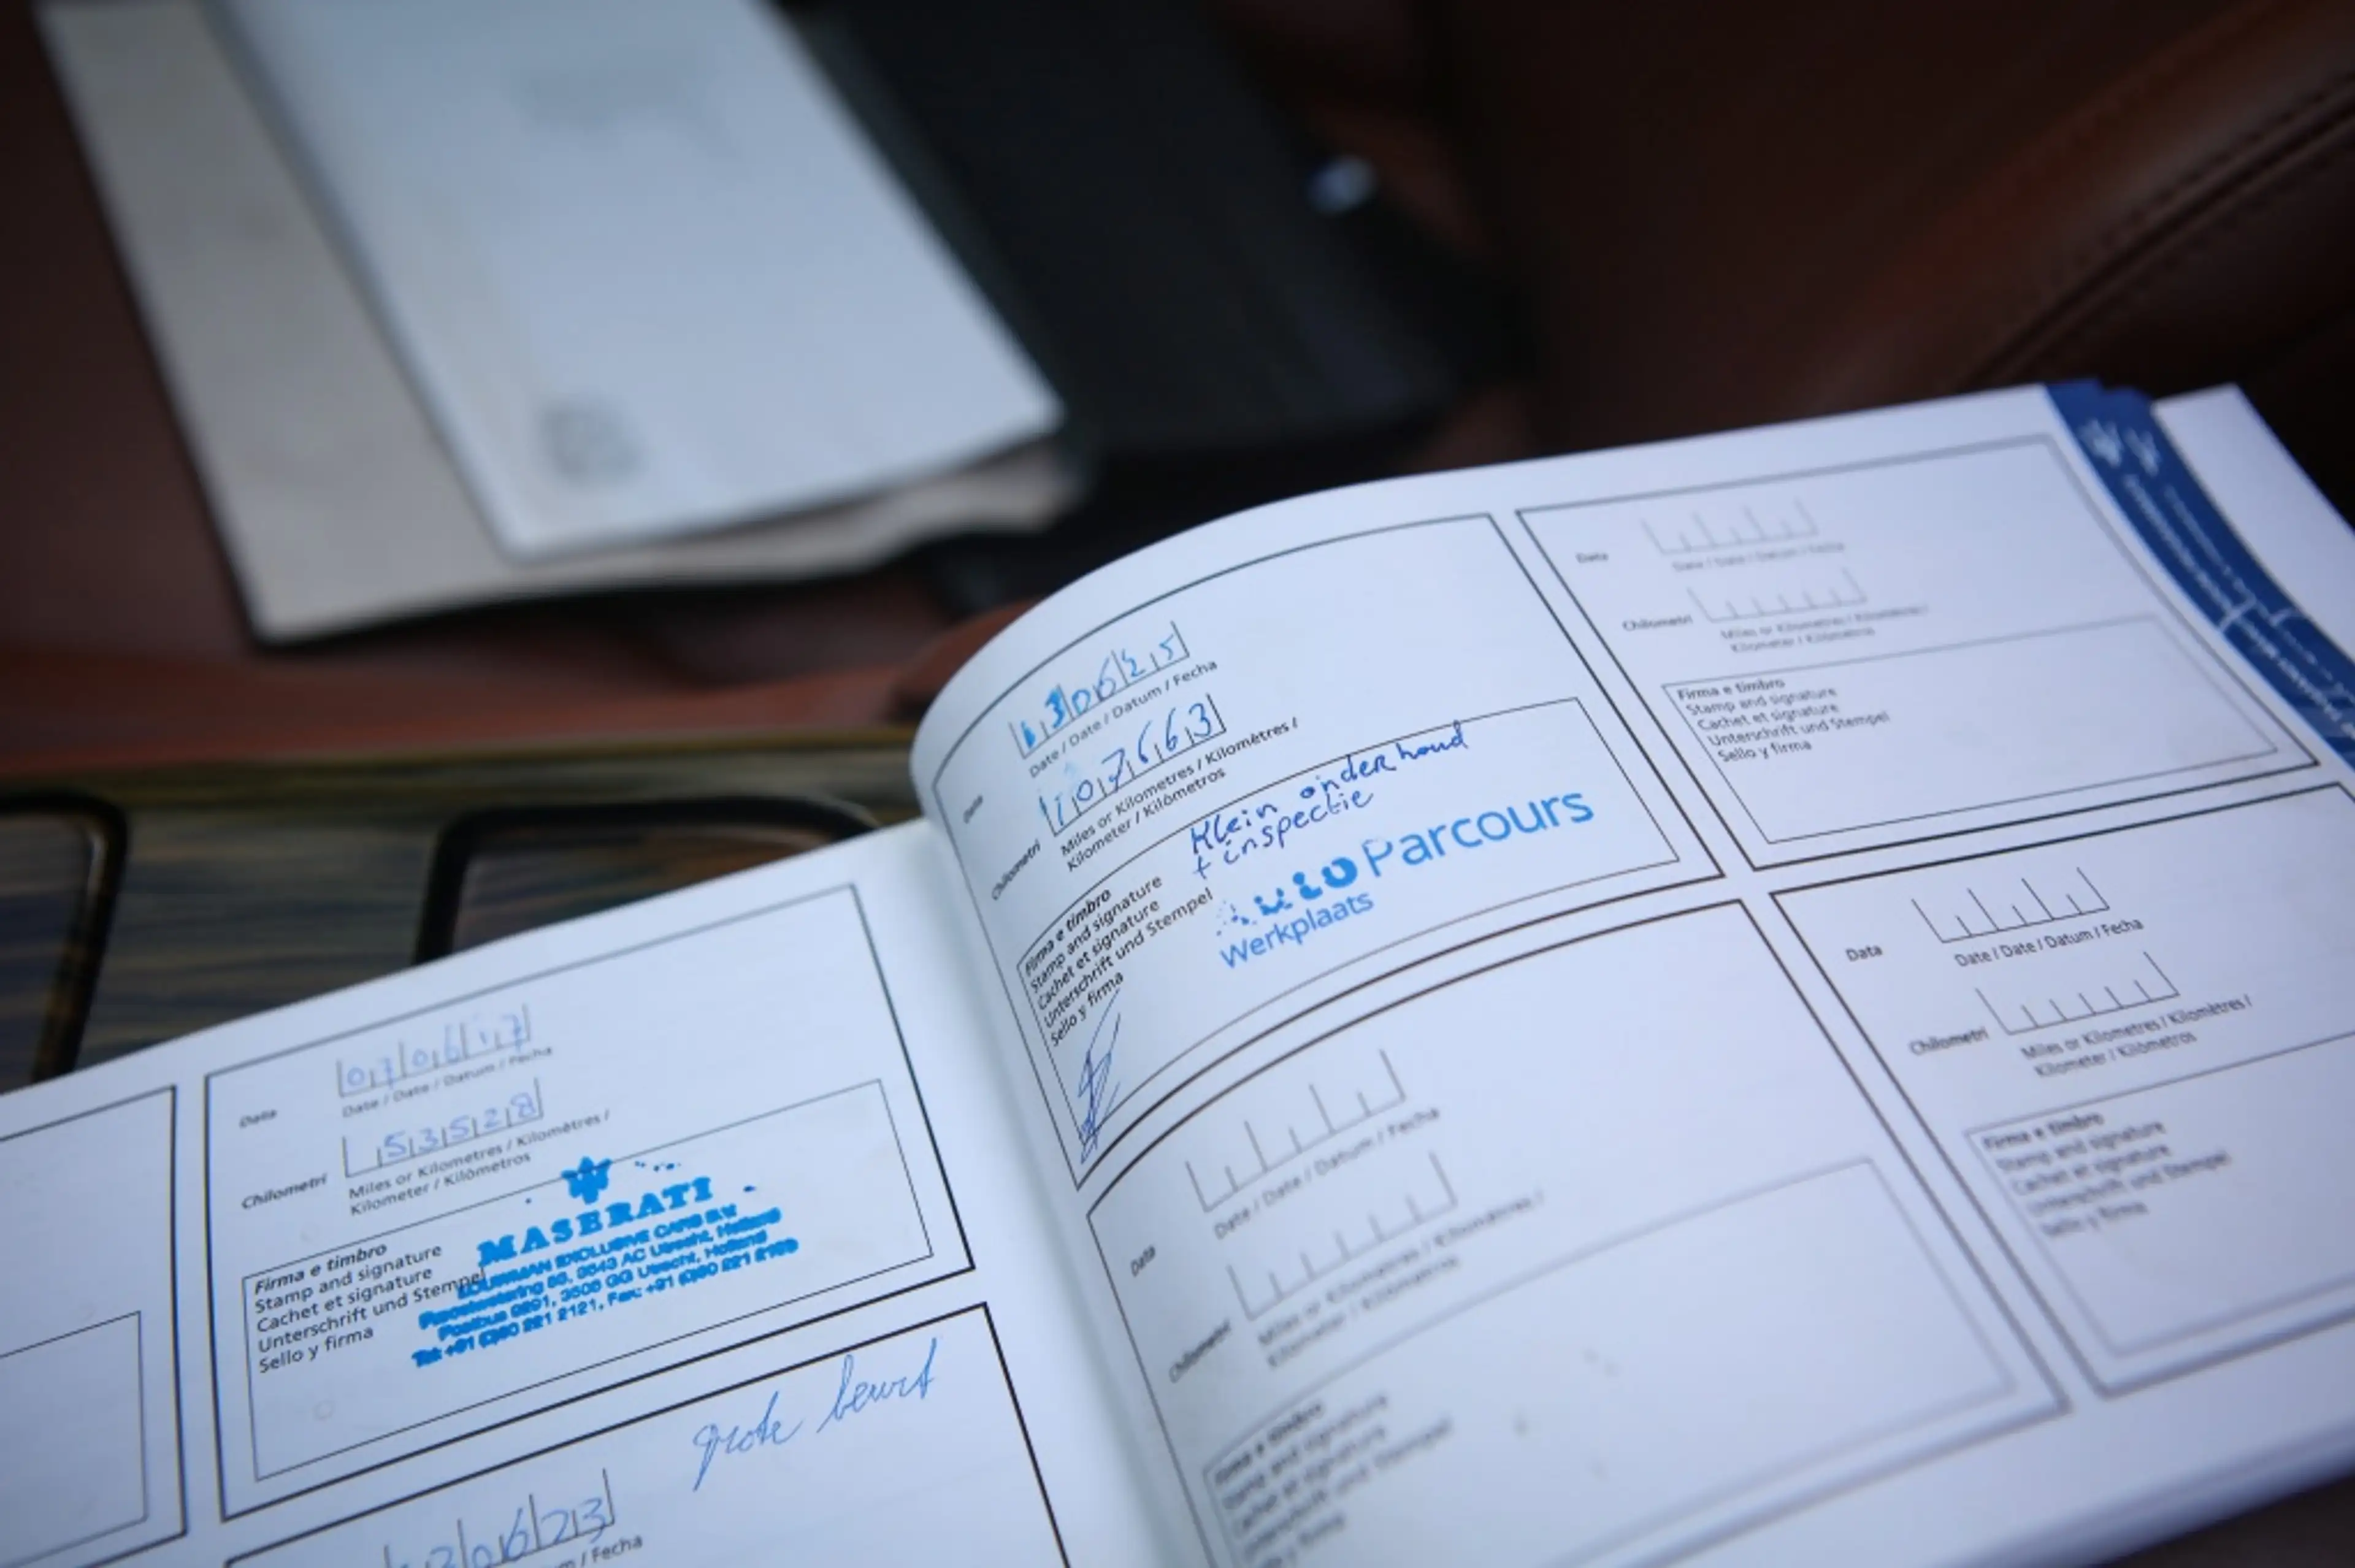 Data
07 06 17
Date / Date / Datum / Fecha
Chilometri
53528
Miles or Kilometres / Kilomètres /
Kilometer / Kilómetros
Firma e timbro
Stamp and signature
Cachet et signature
Unterschrift und Stempel
Sello y firma
MASERATI
EXCLUSIVE CARS B.V.
3543 AC Utrecht, Holland
3506 GG Utrecht, Holland
grote beurt
0623
/ Fecha
Data
130625
Date / Date / Datum / Fecha
Chilometri
107663
Miles or Kilometres / Kilomètres /
Kilometer / Kilómetros
Klein onderhoud
+ inspectie
Firma e timbro
Stamp and signature
Cachet et signature
Unterschrift und Stempel
Sello y firma
Parcours
Werkplaats
Data
Date / Date / Datum / Fecha
Chilometri
Miles or Kilometres / Kilomètres /
Kilometer / Kilómetros
Firma e timbro
Stamp and signature
Cachet et signature
Unterschrift und Stempel
Sello y firma
Data
Date / Date / Datum / Fecha
Chilometri
Miles or Kilometres / Kilomètres /
Kilometer / Kilómetros
Firma e timbro
Stamp and signature
Cachet et signature
Unterschrift und Stempel
Sello y firma
Data
Date / Date / Datum / Fecha
Chilometri
Miles or Kilometres / Kilomètres /
Kilometer / Kilómetros
Firma e timbro
Stamp and signature
Cachet et signature
Unterschrift und Stempel
Sello y firma